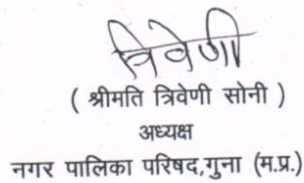 त्रिवेणी
( श्रीमति त्रिवेणी सोनी )
अध्यक्ष
नगर पालिका परिषद,गुना (म.प्र.)